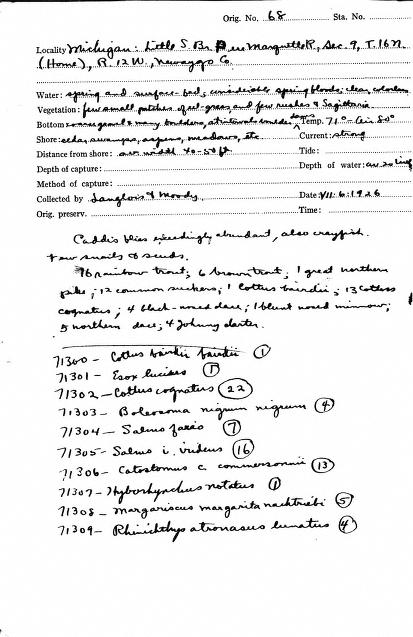 Orig. No. 68 Sta. No.
Locality Michigan: Little S. Br. Pere Marquette R., Sec. 9, T. 16 N.
(Home), R. 12 W., Newaygo Co.
Water: spring and surface-fed; considerable spring floods; clear, colorless
Vegetation: few small patches of eel-grass, and few rushes & Sagittaria
Bottom gravel & many boulders, at intervals Temp. 71°- Air 80°
Shore: cedar swamps, aspens, meadows, etc. Current: strong
Distance from shore: av. width 40-50 ft. Tide:
Depth of capture: Depth of water: av. 20 in
Method of capture:
Collected by Langlois & Moody Date: VII: 6: 1926
Orig. preserv. Time:
Caddis flies exceedingly abundant, also crayfish.
Few snails & leeches.
16 rainbow trout; 6 brown trout; 1 great northern
pike; 12 common suckers; 1 Cottus bairdii; 13 Cottus
cognatus; 4 black-nosed dace; 1 blunt nosed minnow;
5 northern dace; 4 Johnny darter.
71300 - Cottus bairdii bairdii 1
71301 - Esox lucius 1
71302 - Cottus cognatus 22
71303 - Boleosoma nigrum nigrum 4
71304 - Salmo fario 7
71305 - Salmo i. irideus 16
71306 - Catostomus c. commersonnii 13
71307 - Hyborhynchus notatus 1
71308 - Margariscus margarita nachtriebi 5
71309 - Rhinichthys atronasus lunatus 4